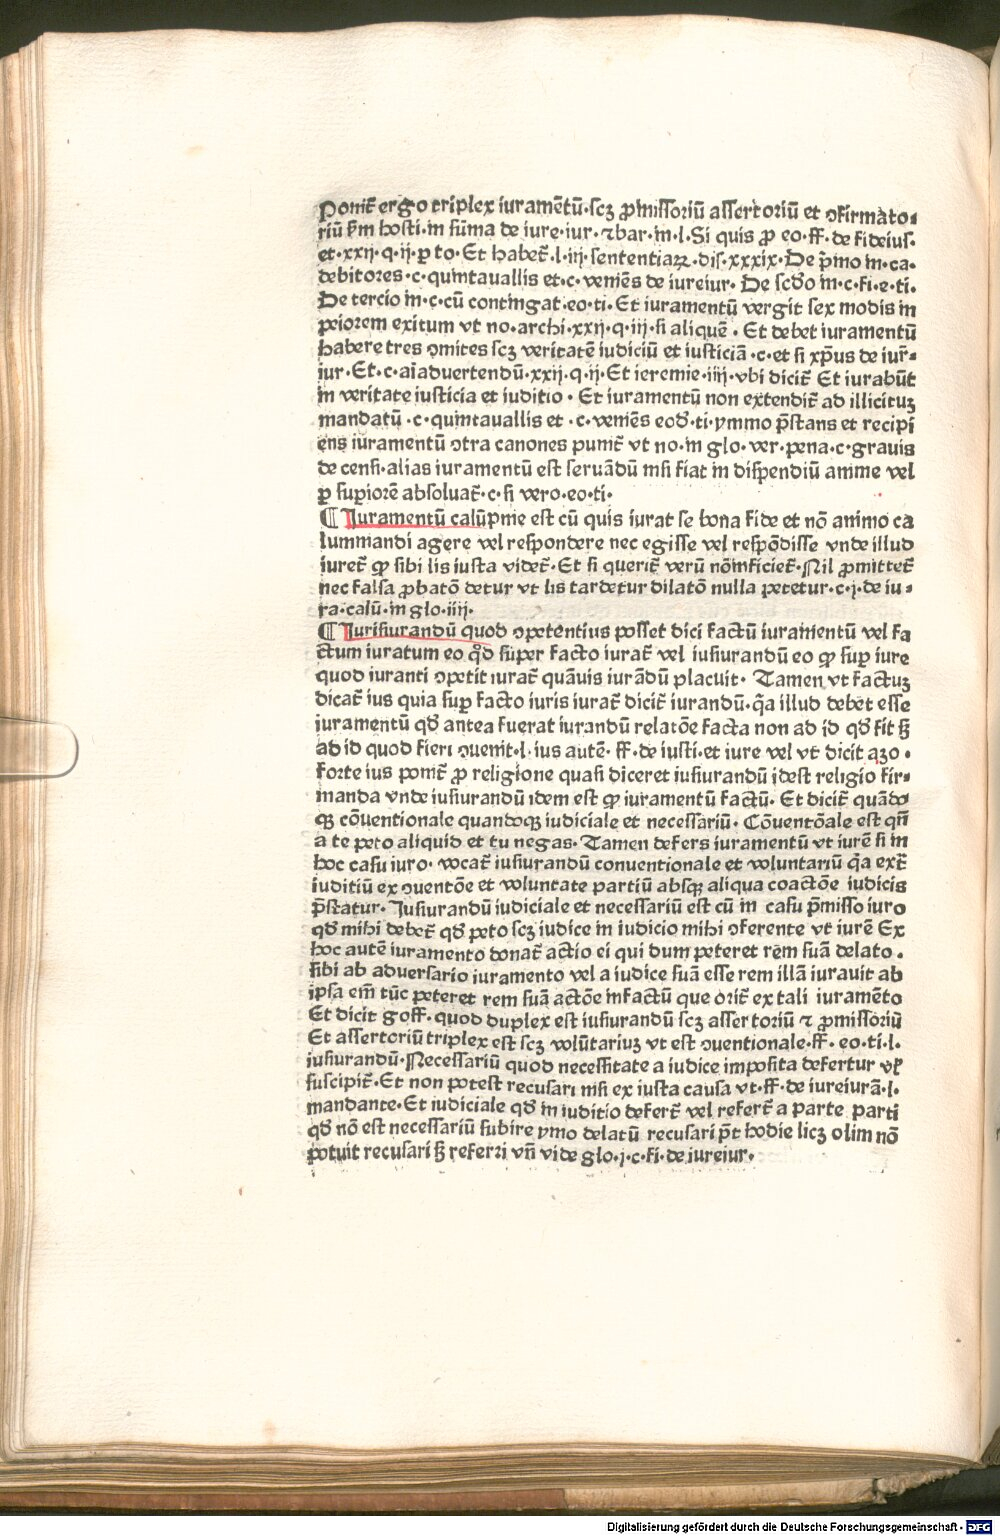 Ponit᷑ ergo triplex iuramētū·scꝫ ꝓmissoriū assertoriū et ↄfirmato⸗
riū ẜm hosti·in sūma de iure·iur·⁊bar·in·l·Si quis ꝓ eo·ff·de fideius·
et·xxij·q·ij·ꝑ to·Et habet᷑·l·iij·sententiaꝝ·dis·xxxix·De p̄mo in·ca·
debitores·c·quintauallis et·c·veniēs de iureiur· De scd̄o in·c·fi·e·ti·
De tercio in·c·cū contingat·eo·ti· Et iuramentū vergit sex modis in
peiorem exitum vt no·archi·xxij·q·iij·si aliquē· Et debet iuramentū
habere tres ↄmites scꝫ veritatē iudiciū et iusticiā·c·et si xp̄us de iur᷑⸗
iur·Et·c·aīaduertendū·xxij·q·ij·Et ieremie·iiij·vbi dicit᷑ Et iurabūt
in veritate iusticia et iuditio· Et iuramentū non extendit᷑ ad illicituꝫ
mandatū·c·quintauallis et·c·veniēs eod̄·ti·ymmo p̄stans et recipi
ens iuramentū ↄtra canones punit᷑ vt no·in glo·ver·pena·c·grauis
de censi·alias iuramentū est seruādū nisi fiat in dispendiū anime vel
ꝑ suꝑiorē absoluat᷑·c·si vero·eo·ti·
¶ Iuramentū calūpnie est cū quis iurat se bona fide et nō animo ca
lumniandi agere vel respondere nec egisse vel respōdisse vnde illud
iuret᷑ ꝙ sibi lis iusta videt᷑·Et si querit᷑ verū nō inficiet᷑·Nil ꝓmittet᷑
nec falsa ꝓbatō detur vt lis tardetur dilatō nulla petetur·c·j·de iu⸗
ra·calū·in glo·iiij·
¶ Iurisiurandū quod ↄpetentius posset dici factū iuramentū vel fa
ctum iuratum eo qd̄ super facto iurat᷑ vel iusiurandū eo ꝙ suꝑ iure
quod iuranti ↄpetit iurat᷑ quāuis iurādū placuit· Tamen vt factuꝫ
dicat᷑ ius quia suꝑ facto iuris iurat᷑ dicit᷑ iurandū·q̄a illud debet esse
iuramentū qd̄ antea fuerat iurandū relatōe facta non ad id qd̄ fit sꝫ
ad id quod fieri ↄuenit·l·ius autē·ff·de iusti·et iure vel vt dicit aʒo·
Forte ius ponit᷑ ꝓ religione quasi diceret iusiurandū idest religio fir⸗
manda vnde iusiurandū idem est ꝙ iuramentū factū· Et dicit᷑ quādo
qꝫ cōuentionale quandoqꝫ iudiciale et necessariū· Cōuentōale est qn̄
a te peto aliquid et tu negas·Tamen defers iuramentū vt iurē si in
hoc casu iuro·vocat᷑ iusiurandū conuentionale et voluntariū q̄a ext᷑
iuditiū ex ↄuentōe et voluntate partiū absqꝫ aliqua coactōe iudicis
p̄statur·Iusiurandū iudiciale et necessariū est cū in casu p̄misso iuro
qd̄ mihi debet᷑ qd̄ peto scꝫ iudice in iudicio mihi ↄferente vt iurē Ex
hoc autē iuramento donat᷑ actio ei qui dum peteret rem suā delato·
sibi ab aduersario iuramento vel a iudice suā esse rem illā iurauit ab
ipsa em̄ tūc peteret rem suā actōe infactū que orit᷑ ex tali iuramēto
Et dicit goff·quod duplex est iusiurandū scꝫ assertoriū ⁊ ꝓmissoriū
Et assertoriū triplex est scꝫ volūtariuꝫ vt est ↄuentionale·ff·eo·ti·l·
iusiurandū·Necessariū quod necessitate a iudice imposita defertur vl̓
suscipit᷑·Et non potest recusari nisi ex iusta causa vt·ff·de iureiurā·l·
mandante·Et iudiciale qd̄ in iuditio defert᷑ vel refert᷑ a parte parti
qd̄ nō est necessariū subire ymo delatū recusari p̄t hodie licꝫ olim nō
potuit recusari sꝫ referri vn̄ vide glo·j·c·fi·de iureiur·
Digitalisierung gefördert durch die Deutsche Forschungsgemeinschaft - DFG